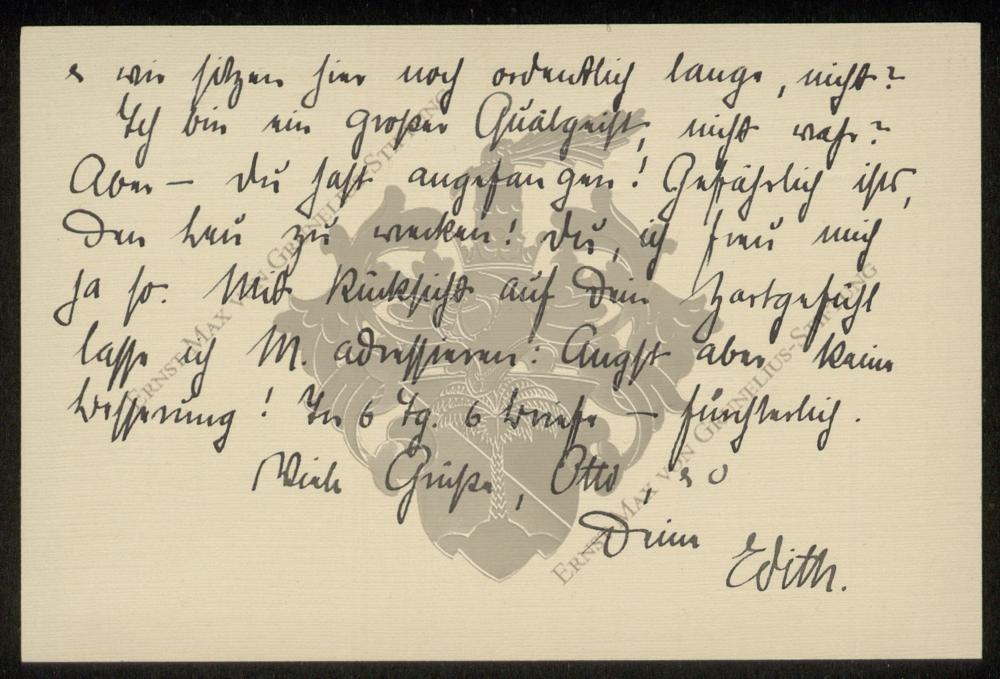 & wir sitzen hier noch ordentlich lange, nicht?
Ich bin ein großer Quälgeist, nicht wahr?
Aber – Du hast angefangen! Gefährlich ists,
den Leu zu wecken! Du, ich freu mich
ja so. Mit Rücksicht auf Dein Zartgefühl
lasse ich M. adressieren: Angst aber keine
Besserung! In 6 Tg. 6 Briefe – fürchterlich.
Viele Grüße, Otto,
Deine
Edith.
ERNST-MAX VON GRUNELIUS-STIFTUNG
ERNST-MAX VON GRUNELIUS-STIFTUNG